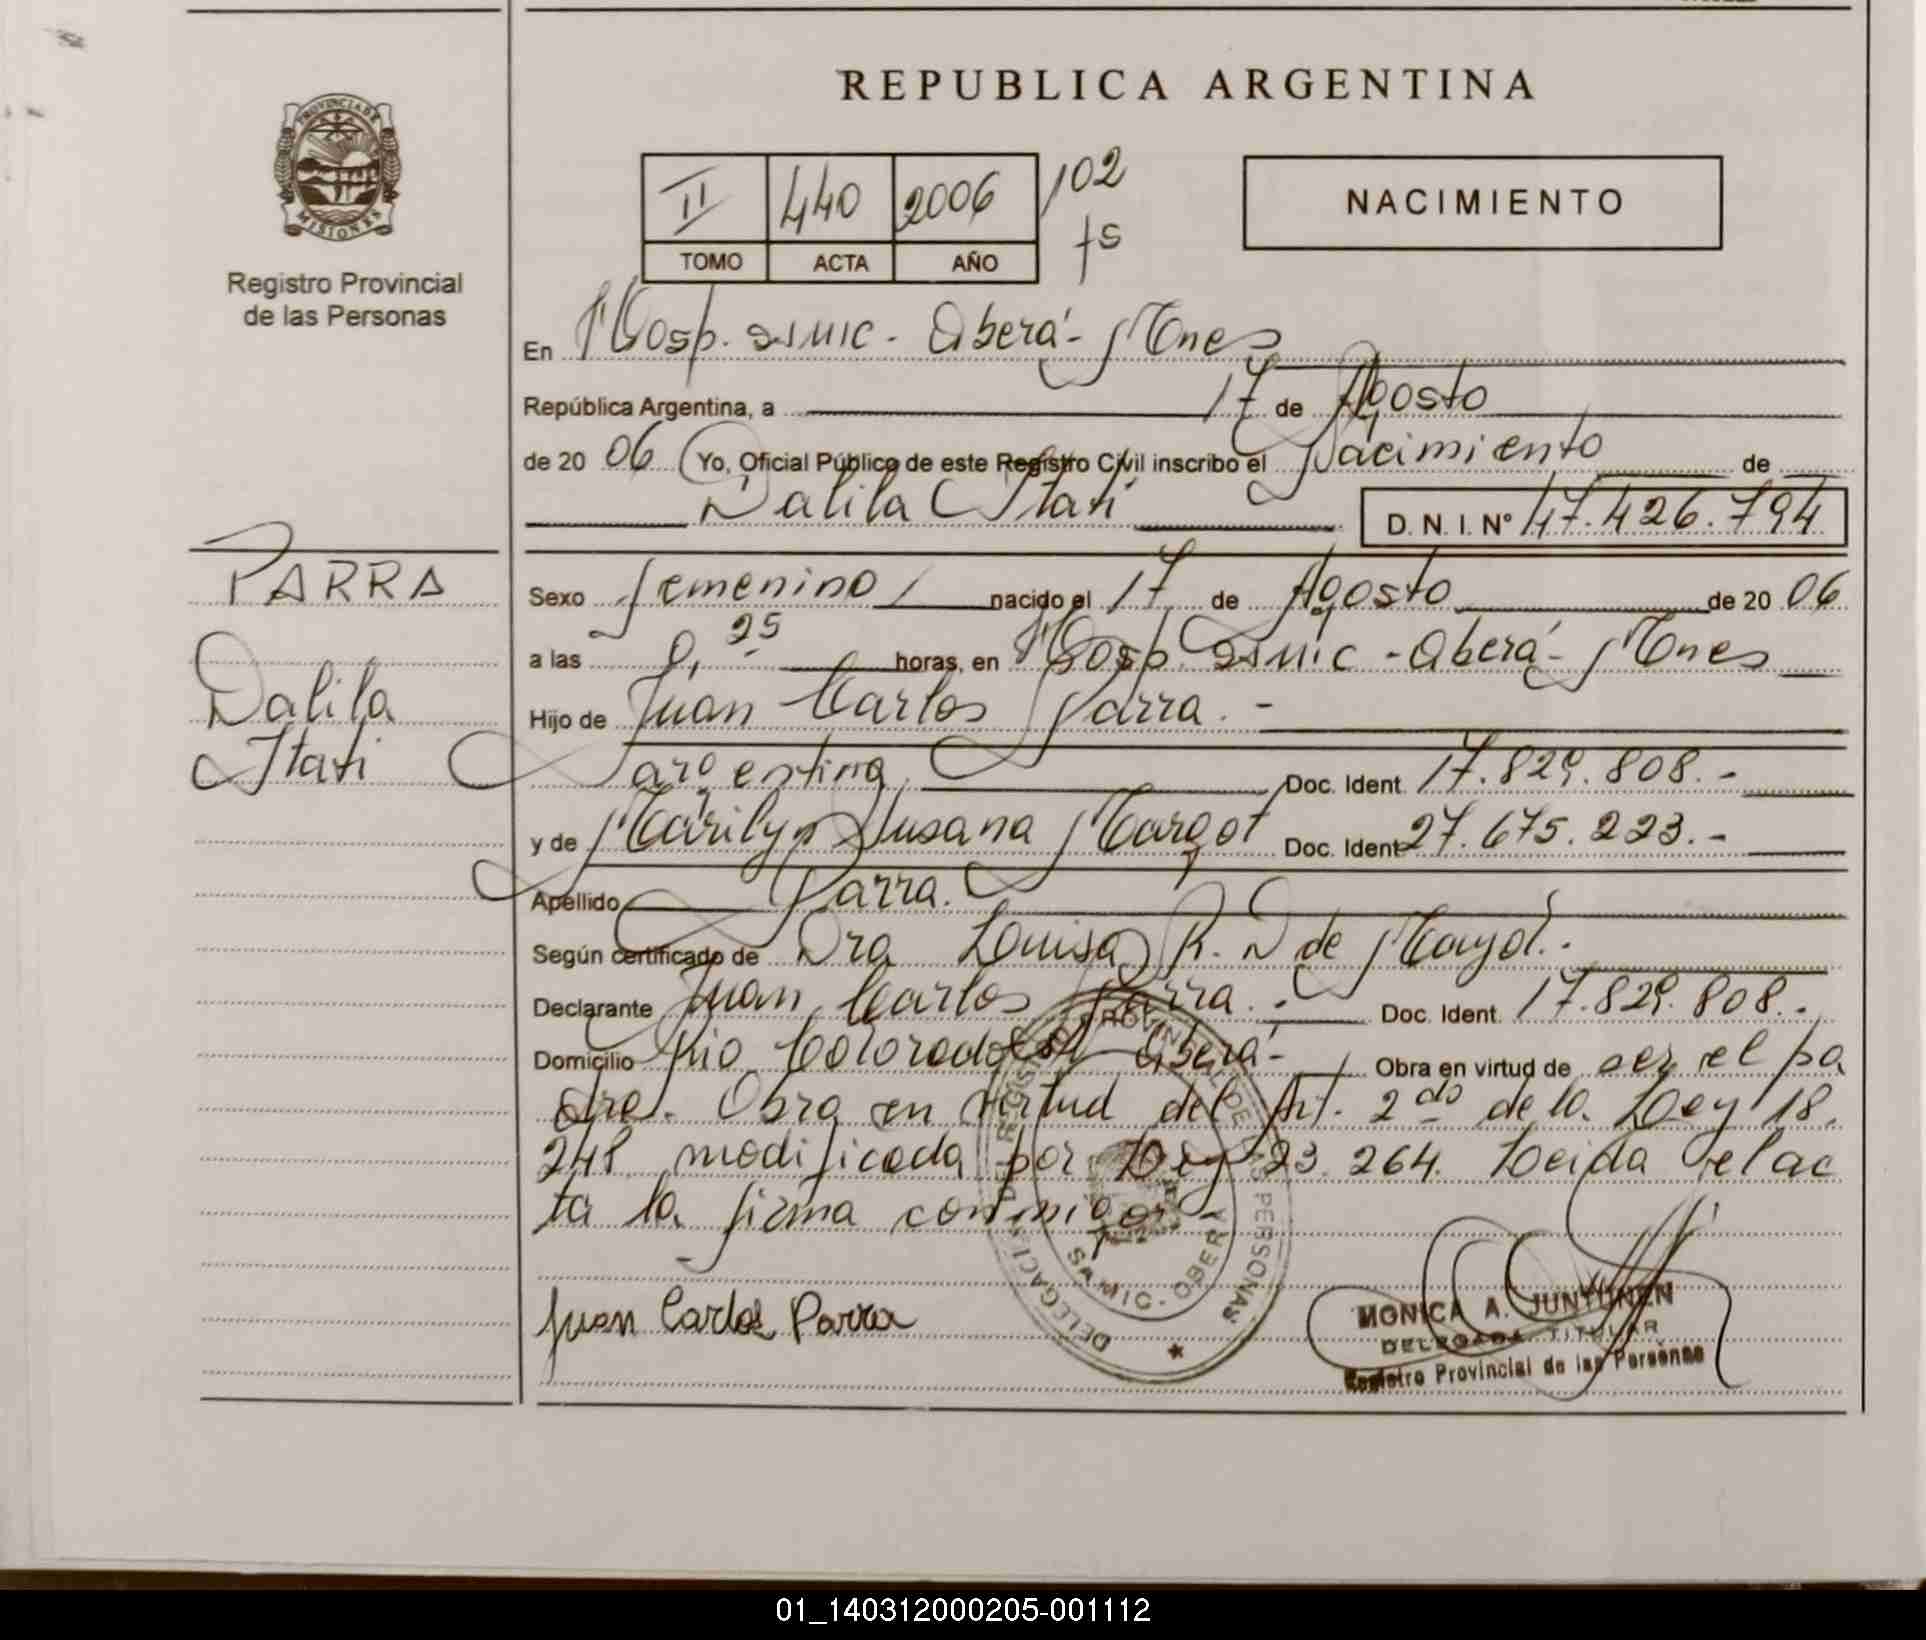 REPUBLICA ARGENTINA
PROVINCIA DE
MISIONES
Registro Provincial
de las Personas
II 440 2006 102
TOMO ACTA AÑO fs
NACIMIENTO
En Hosp. SAMIC - Oberá - Mnes
República Argentina, a 17 de Agosto
de 20 06 Yo, Oficial Público de este Registro Civil inscribo el Nacimiento de
Dalila Itatí D. N. I. Nº 47.426.794
PARRA
Dalila
Itatí
Sexo femenino nacido el 17 de Agosto de 20 06
a las 0,25 horas, en Hosp. SAMIC - Oberá - Mnes
Hijo de Juan Carlos Parra. -
argentino Doc. Ident. 17.829.808. -
y de Marilyn Susana Margot Doc. Ident 27.675.223. -
Apellido Parra.
Según certificado de Dra Luisa R. D de Mayol. -
Declarante Juan Carlos Parra. - Doc. Ident. 17.829.808. -
Domicilio Rio Colorado Oberá - Obra en virtud de ser el pa
dre. Obra en virtud del Art. 2do de la Ley 18.
248 modificada por Ley 23.264. Leida el ac
ta la firma conmigo. -
Juan Carlos Parra
DELEGACION REGISTRO PROVINCIAL DE LAS PERSONAS
SAMIC - OBERA
MONICA A. JUNTUNEN
DELEGADA TITULAR
Registro Provincial de las Personas
01_140312000205-001112